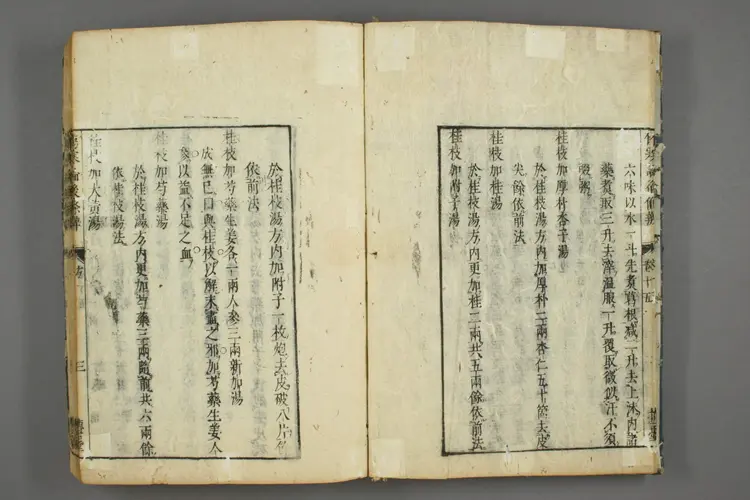 六味以水一斗先煮葛根減二升去上沫内諸
藥煮取三升去滓温服一升覆取微似汗不須
啜粥
桂枝加厚朴杏子湯
於桂枝湯方内加厚朴二兩杏仁五十箇去皮
尖餘依前法
桂枝加桂湯
於桂枝湯方内更加桂二兩共五兩餘依前法
桂枝加附子湯
於桂枝湯方内加附子一枚炮去皮破八片餘
依前法
桂枝加芍藥生姜各一兩人參三兩新加湯
成無已曰與桂枝以解未盡之邪加芍藥生姜人
參以益不足之血
桂枝加芍藥湯
於桂枝湯方内更加芍藥三兩隨前共六兩餘
依桂枝湯法
桂枝加大黄湯
三